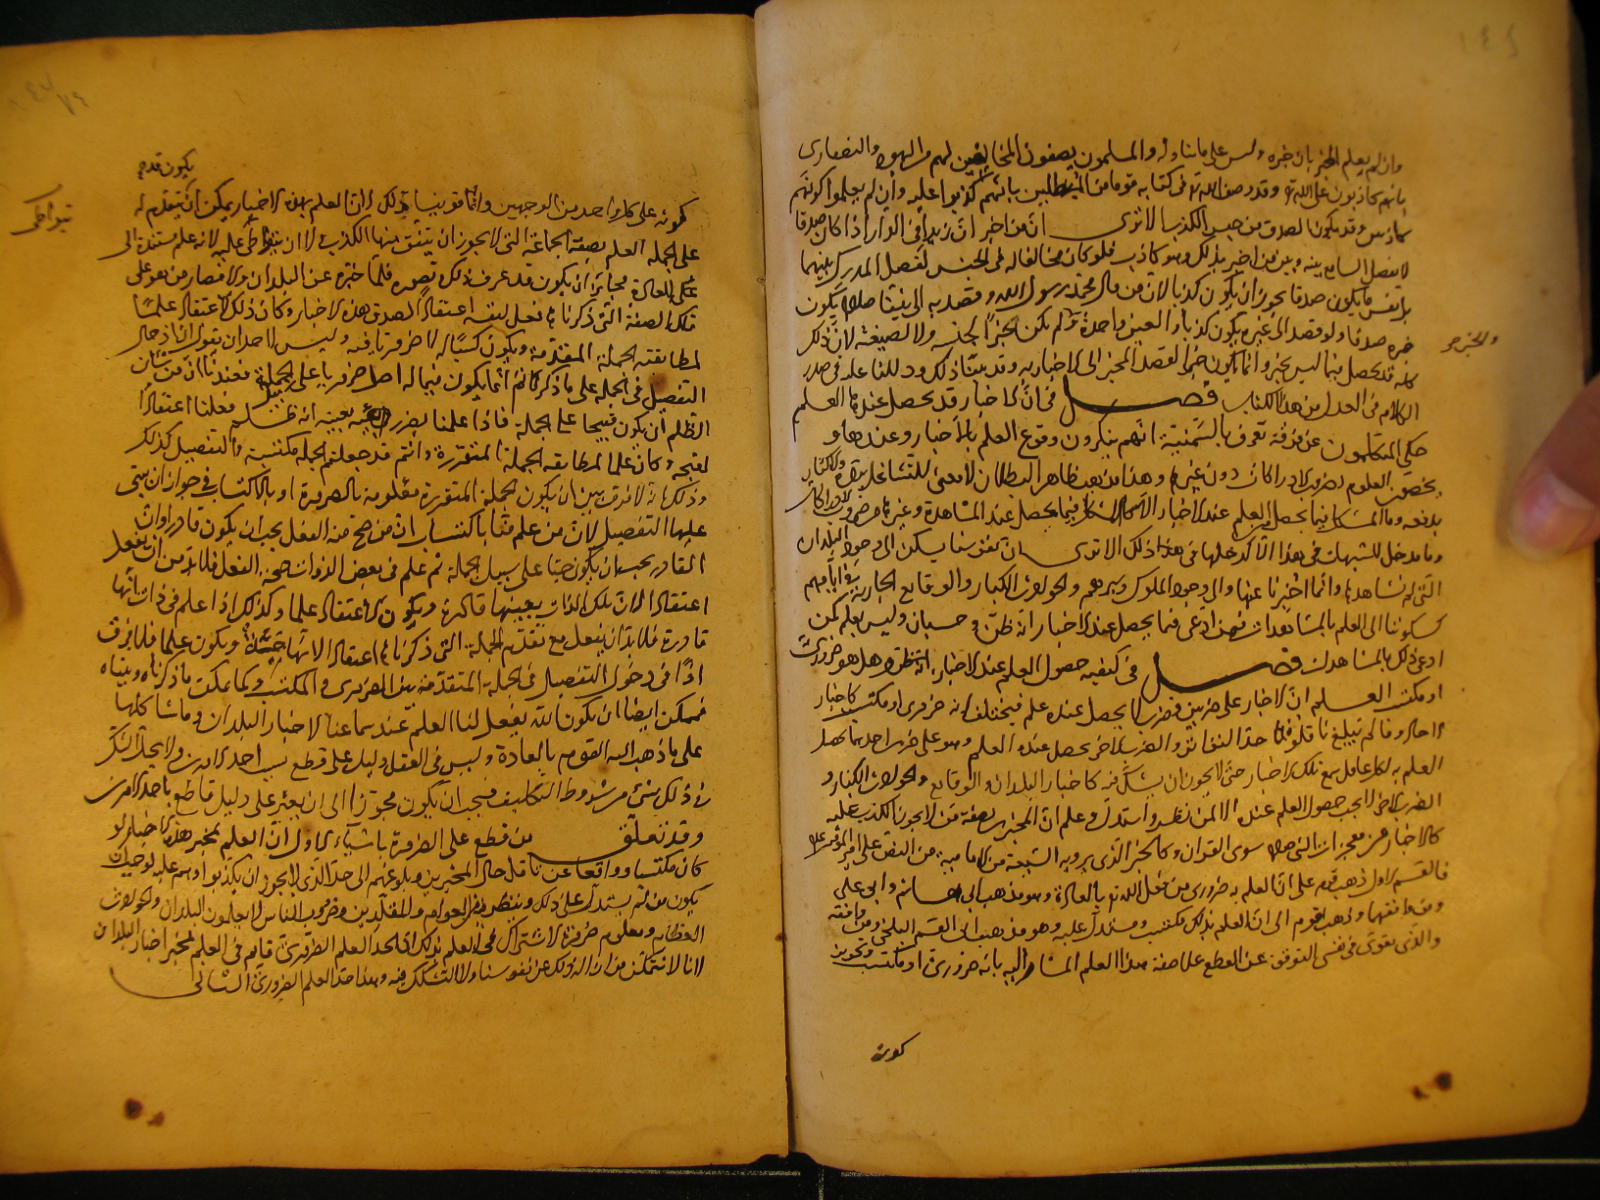 وان لم يعلم المخبر بان خبره وليس على ما يتناوله والمسلمون يصفون المخالفين لهم من اليهود والنصارى
بانهم كاذبون على الله تع وقد وصف الله تع في كتابه قوما من المبطلين بانهم كذبوا عليه وان لم يعلموا كونهم
كاذبين وقد يكون الصدق من جنس الكذب الا ترى ان من اخبر ان زيدا في الدار اذا كان صادقا
لا يفصل السامع بينه وبين من اخبر بذلك وهو كاذب فلو كان مخالفا له في الجنس لفصل المدرك بينهما
بل نفس ما يكون صدقا يجوز ان يكون كذبا لان من قال محمد رسول الله وقصد به الى نبينا صلعم يكون
خبره صدقا ولو قصد الى غيره يكون كذبا والعين واحدة ولم يكن الخبر خبرا لجنسه ولا لصيغته لان ذلك
كله قد يحصل فيما ليس بخبر وانما يكون خبرا لقصد المخبر الى الاخبار به وقد بينا ذلك ودللنا عليه في صدر
الكلام في العدل من هذا الكتاب فصل في ان الاخبار قد يحصل عندها العلم
حكى المتكلمون عن فرقة تعرف بالسمنية انهم ينكرون وقوع العلم بالاخبار وعندها و
يخصون العلوم بضروب الادراكات دون غيرها وهذا مذهب ظاهر البطلان لا معنى للتشاغل
بدفعه وما المشكك فيما يحصل من العلم عند الاخبار الا كالمشكك فيما يحصل عند المشاهدة وغيرها من ضروب الادراكات
وما مدخل للشبهات في هذا الا كمدخلها في ذلك الا ترى ان نفوسنا يسكن الى وجود البلدان
التي لم نشاهدها وانما اخبرنا عنها والى وجود الملوك وسيرهم والحوادث الكبار والوقايع الجارية في ايامهم
كسكوننا الى العلم بالمشاهدات فمن ادعى فيما يحصل عند الاخبار انه ظن وحسبان وليس بعلم كمن
ادعى ذلك بالمشاهدات فصل في كيفية حصول العلم عند الاخبار وهل هو ضروري
او مكتسب العلم ان الاخبار على ضربين فضرب لا يحصل عنده علم فيختلف انه ضروري او مكتسب كاخبار
الاحاد وما لم يبلغ ناقلوها حد التواتر والضرب الاخر يحصل عنده العلم وهو على ضربين احدهما يحصل
العلم به لكل عاقل يسمع تلك الاخبار حتى لا يجوز ان يشك فيه كاخبار البلدان والوقايع والحوادث الكبار و
الضرب الاخر لا يجب حصول العلم عنده الا لمن نظر واستدل وعلم ان المخبرين بصفة من لا يجوز الكذب عليه
كالاخبار عن معجزات النبي صلعم سوى القران وكالخبر الذي يرويه الشيعة من الامامية من النص على امير المؤمنين
فالقسم الاول ذهب قوم على ان العلم به ضروري من فعل الله تع بالعادة وهو مذهب ابي هاشم وابي علي
ومن وافقهما وذهب قوم الى ان العلم بذلك مكتسب ومستدل عليه وهو مذهب ابي القسم البلخي ومن وافقه
والذي يقوى في نفسي التوقف عن القطع على صفة هذا العلم المشار اليه بانه ضروري او مكتسب وتجويز
كونه
كونه على كل واحد من الوجهين وانما قوينا ذلك لان العلم بهذه الاخبار يمكن ان يتقدم له
على الجملة العلم بصفة الجماعة التي لا يجوز ان يتفق منها الكذب ولا ان يتواطئ عليه لانه علم مستند الى
العادة فجائز ان يكون قد عرف ذلك وتصوره فلما خبره عن البلدان والامصار من هو على
تلك الصفة التي ذكرناها فعل لنفسه اعتقاد الصدق هذه الاخبار وكان ذلك الاعتقاد علما
لمطابقته الجملة المتقدمة ويكون كسبا له لا ضرورة فيه وليس لاحد ان يقول ان ادخال
التفصيل في الجملة على ما ذكرتم انما يكون فيما له اصل ضروري على سبيل الجملة فعندنا ان من شان
الظلم ان يكون قبيحا على الجملة فاذا علمنا بضرر بعينه انه ظلم فعلنا اعتقادا
لقبحه وكان علما لمطابقة الجملة المتقررة وانتم قد جعلتم الجملة مكتسبة والتفصيل كذلك
وذلك انه لا فرق بين ان يكون الجملة المتقررة معلومة بالضرورة او بالاكتساب في جواز ان يبتني
عليها التفصيل لان من علم منا باكتساب ان من صح منه الفعل يجب ان يكون قادرا وان
القادر يجب ان يكون حيا على سبيل الجملة ثم علم في بعض الذوات صحة الفعل فلا بد من ان يفعل
اعتقادا لان تلك الذات بعينها قادرة ويكون الاعتقاد علما وكذلك اذا علم في ذات انها
قادرة فلا بد ان يفعل مع تقدم الجملة التي ذكرناها اعتقادا لانها حية ويكون علما فلا فرق
اذا في دخول التفصيل في الجملة المتقدمة بين الضروري والمكتسب وكما يمكن ما ذكرناه وبيناه
فممكن ايضا ان يكون الله يفعل لنا العلم عند سماعنا الاخبار البلدان وما شاكلها
على ما ذهب اليه القوم بالعادة وليس في العقل دليل على قطع بسبب احد الامرين ولا يخل التشكك
في ذلك بشئ من شروط التكليف فيجب ان يكون مجوزا الى ان يعثر على دليل قاطع باحد الامرين
وقد تعلق من قطع على الضرورة باشياء الاول ان العلم بمخبر هذه الاخبار لو
كان مكتسبا وواقعا عن تامل حال المخبرين وبلوغهم الى حد الذي لا يجوز ان يكذبوا وهم عليه لوجب ان
يكون من لم يستدل على ذلك وينظر فيه من العوام والمقلدين وضروب الناس لا يعلمون البلدان والحوادث
العظام ومعلوم ضرورة الاشتراك في العلم بذلك الثاني ان حد العلم الضروري قائم في العلم بمخبر اخبار البلدان
لانا لا نتمكن من ازالة ذلك عن نفوسنا ولا التشكك فيه وهذا حد العلم الضروري الثالث